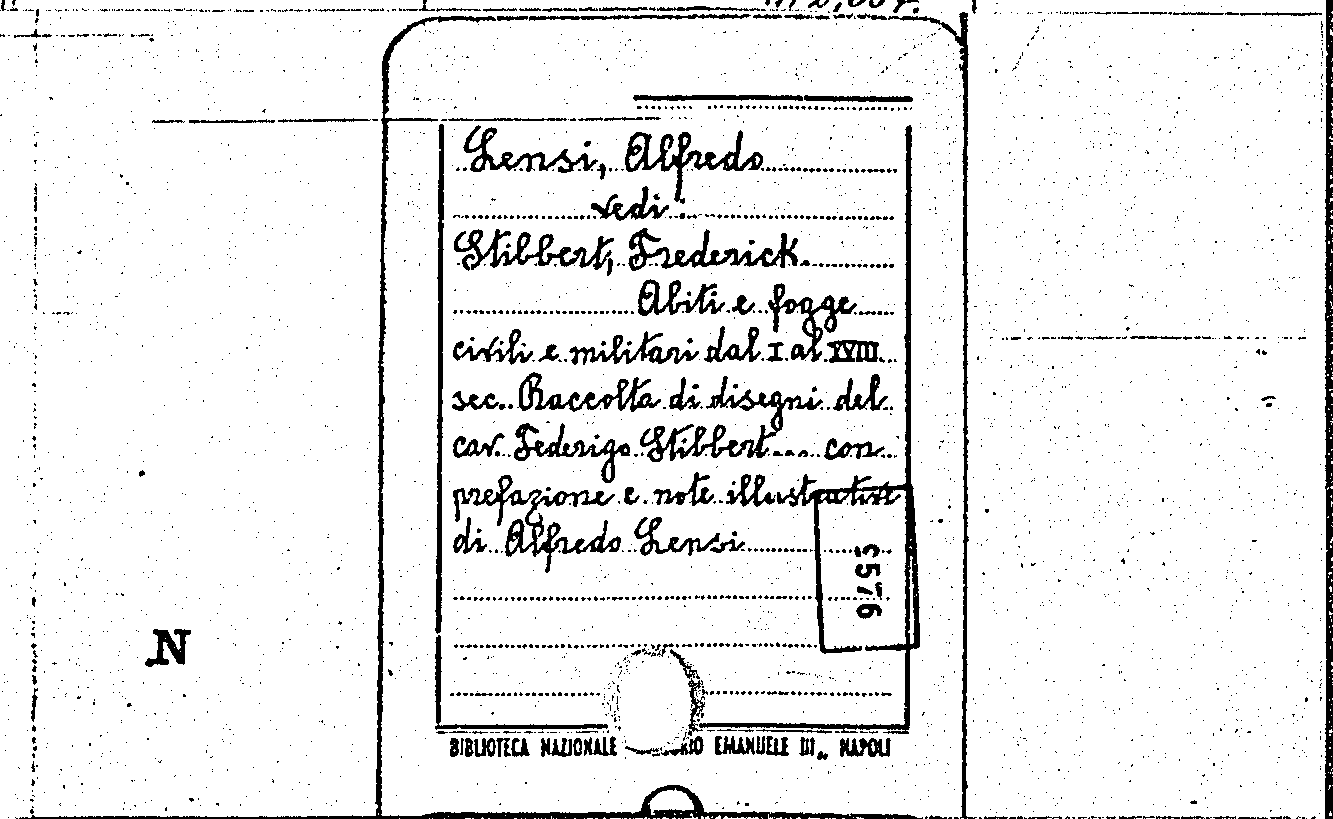 Lensi, Alfredo
vedi:
Stibbert, Frederick.
Abiti e fogge
civili e militari dal I al XVIII
sec.. Raccolta di disegni del
cav. Federigo Stibbert... con
prefazione e note illustrative
di Alfredo Lensi
5576
N
BIBLIOTECA NAZIONALE EMANUELE III„ NAPOLI